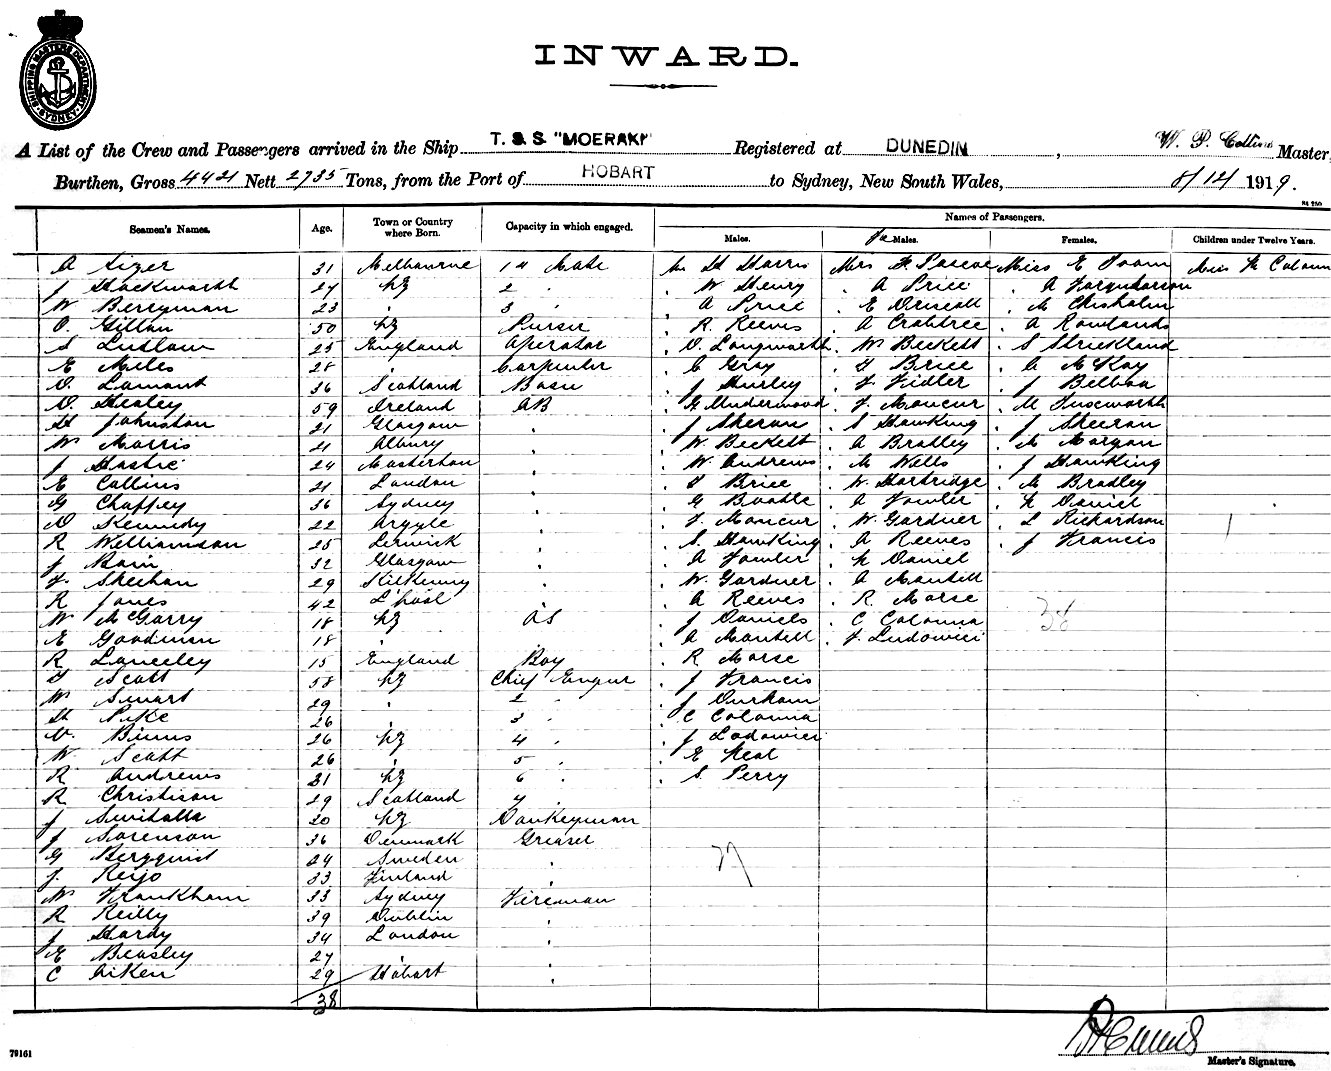 SHIPPING MASTERS DEPARTMENT SYDNEY
INWARD.
A List of the Crew and Passengers arrived in the Ship T. S S "MOERAKI" Registered at DUNEDIN, W. P. Collins Master
Burthen, Gross 4421 Nett 2735 Tons, from the Port of HOBART to Sydney, New South Wales, 8/12/ 1919.
84 250
Names of Passengers.
Seamen's Names. Age. Town or Country where Born. Capacity in which engaged. Males. Fe Males. Females. Children under Twelve Years.
A 31 Melbourne 1st Mate Mr H Harris Mrs F. Pascoe Miss E Miss N Colonna
J Stackworth 27 NZ 2 " W Henry " A Price " A Farquharson
W Berryman 23 " 3 " " A Price " E Driscoll " M Chisholm
O. Gillan 50 NZ Purser " R. Reeves " A Crabtree " A Rowlands
S Ludlow 25 England Operator " O. Longworth " W Beckett " S Strickland
E Miles 28 " Carpenter " C Gray " F Brice " A McKay
D Lamont 36 Scotland Bosn " J Hurley " F Fidler " J
D Healey 59 Ireland AB " G Underwood " F Moncur " M
H Johnston 21 Glasgow " " J Sheran " S Hawking " J Sheeran
W Morris 21 Albury " " W. Beckett " A Bradley " M Morgan
J Hastie 24 Masterton " " W. Andrews " M Wells " J Hawking
E Collins 21 London " " F Brice " W Hartridge " M Bradley
G Chaffey 36 Sydney " " G Boddle " A Fowler " N Daniel
D Kennedy 22 Argyle " " F. Moncur " W. Gardner " L Richardson 1
R Williamson 25 Lerwick " " S. Hawking " A Reeves " J Francis
J Bain 32 Glasgow " " A Fowler " N Daniel
F. Sheehan 29 Kilkenny " " W. Gardner " A Mantell
R Jones 42 L'pool " " A Reeves " R. Morse
W McGarry 18 NZ OS " J Daniels " C Colonna 38
E Goodman 18 " " " A Mantell " F. Ludowici
R Langley 15 England Boy " R Morse
F Scott 58 NZ Chief Engnr " J Francis
W Smart 29 " 2 " " J Durham
H Pike 26 " 3 " " C Colonna
V. Binns 26 NZ 4 " " J Lodowici
W. Scott 26 " 5 " " E Neal
R Andrews 31 NZ 6 " " S. Perry
R Christison 29 Scotland 7 "
J 20 NZ Donkeyman
J Sorenson 36 Denmark Greaser
G Bergquist 24 Sweden "
J. Reijo 33 Finland "
W Frankham 33 Sydney Fireman
R Reilly 39 Dublin "
J Hardy 34 London "
E Beasley 27 " "
C Aiken 29 Hobart "
38
79161
Master's Signature.